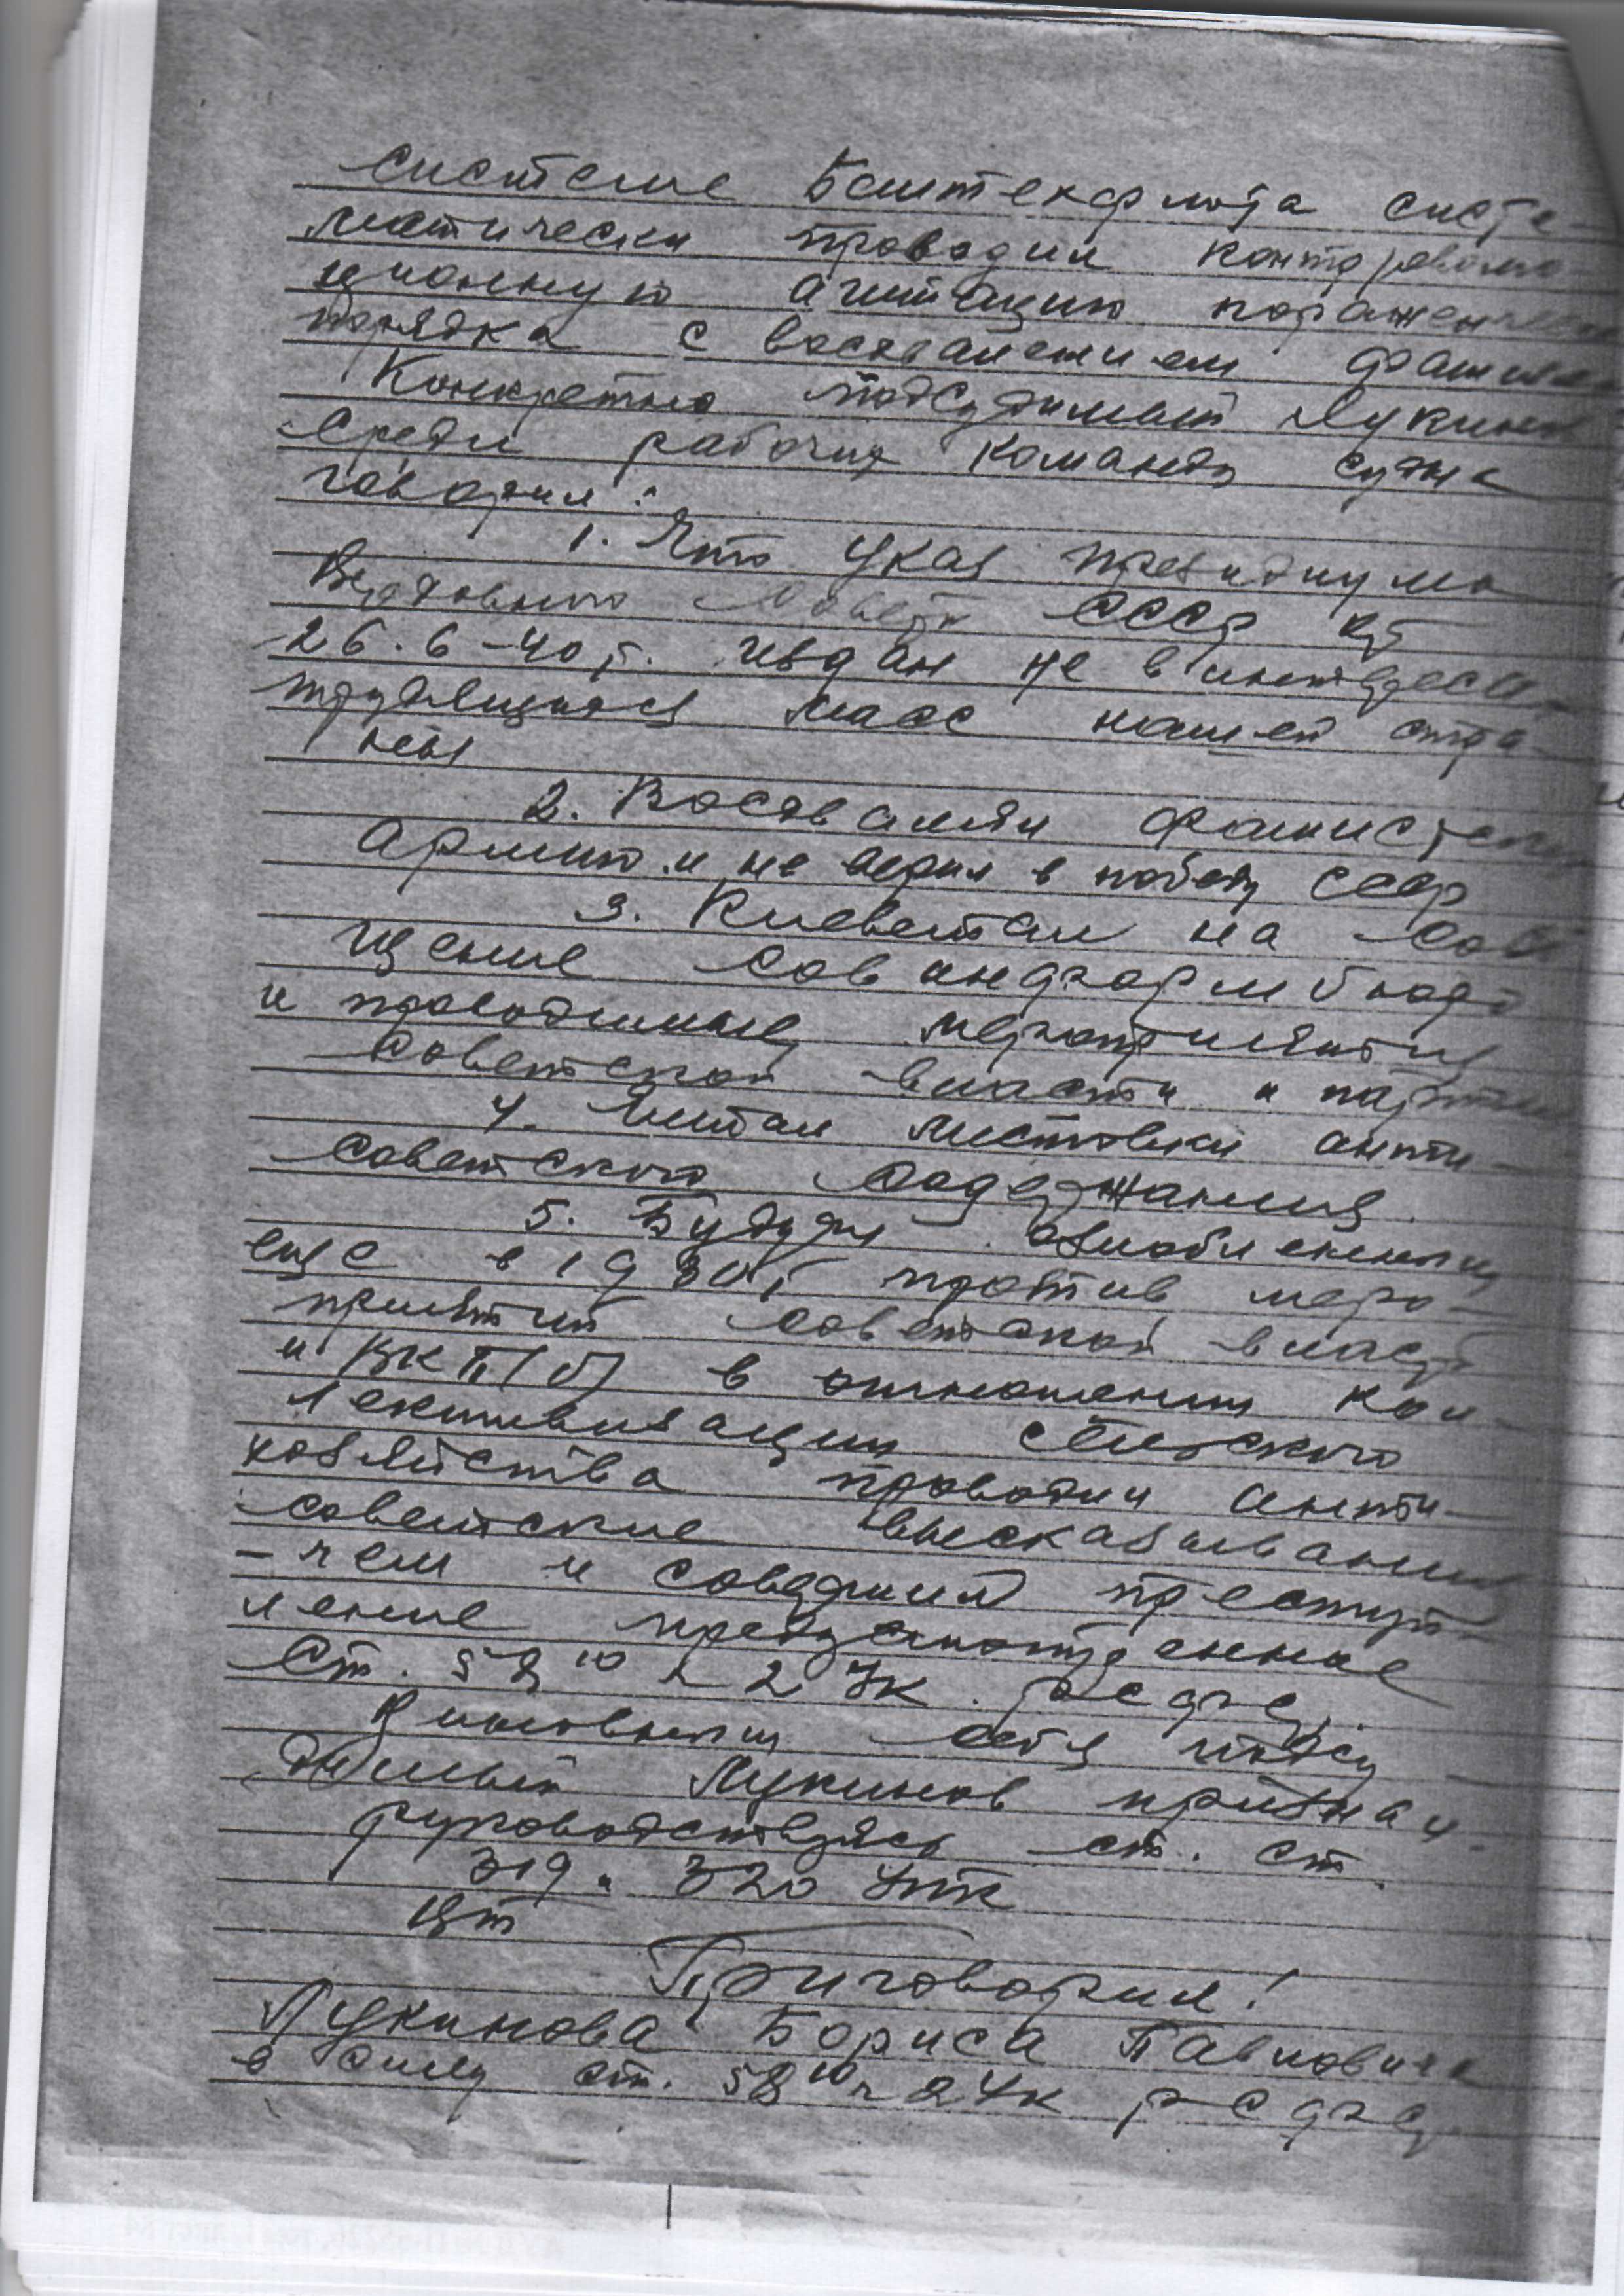 системе Баштекфлота систе-
матически проводил контрреволю-
ционную агитацию пораженческого
порядка с восхвалением фашизма
Конкретно подсудимый Лукинов
среди рабочих команды судна
говорил:
1. Что указ президиума
Верховного Совета СССР от
26.6-40 г. издан не в интересах
трудящихся масс нашей стра-
ны
2. Восхвалял фашистскую
Армию и не верил в победу СССР
3. Клеветал на сооб
щение совинформбюро
и проводимые мероприятия
советской власти и партии
4. Читал листовки анти-
советского содержания.
5. Будучи озлобленный
еще в 1930 г против меро-
приятий советской власти
и ВКП(б) в отношении кол-
лективизации сельского
хозяйства проводил анти-
советские высказывания
- чем и совершил преступ-
ление предусмотренное
ст. 58¹⁰ ч 2 УК. РСФСР.
Виновным себя подсу-
димый Лукинов признал.
руководствуясь ст. ст.
319 и 320 УПК
Приговорил!
Лукинова Бориса Павловича
в силу ст. 58¹⁰ ч 2 УК РСФСР